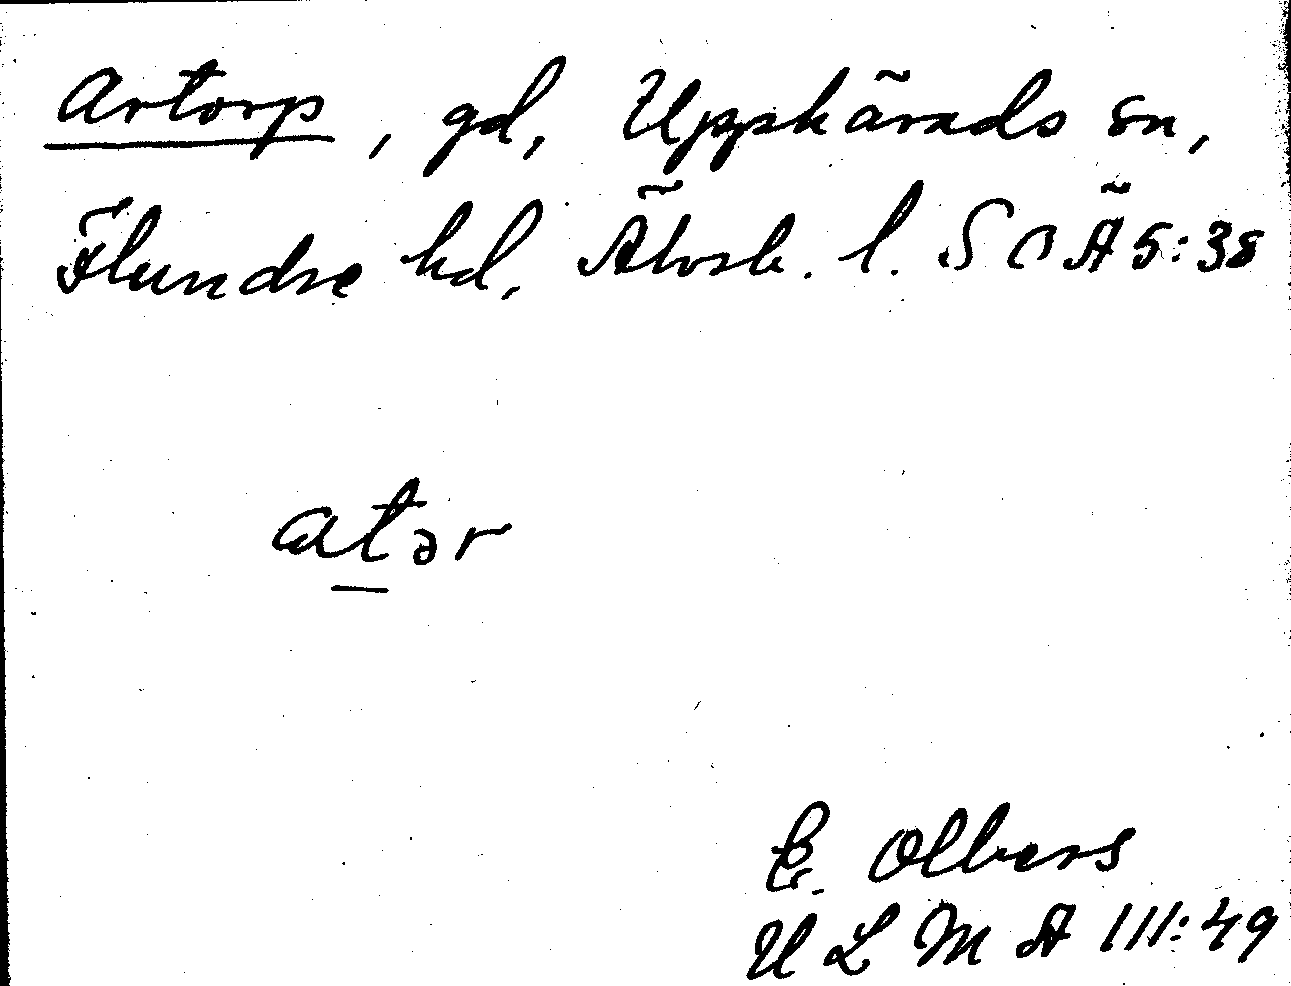 Artorp, gd, Upphärads sn,
Flundre hd, Älvsb. l. SOÄ 5:38
atər
E. Olbers
ULMA 111:49